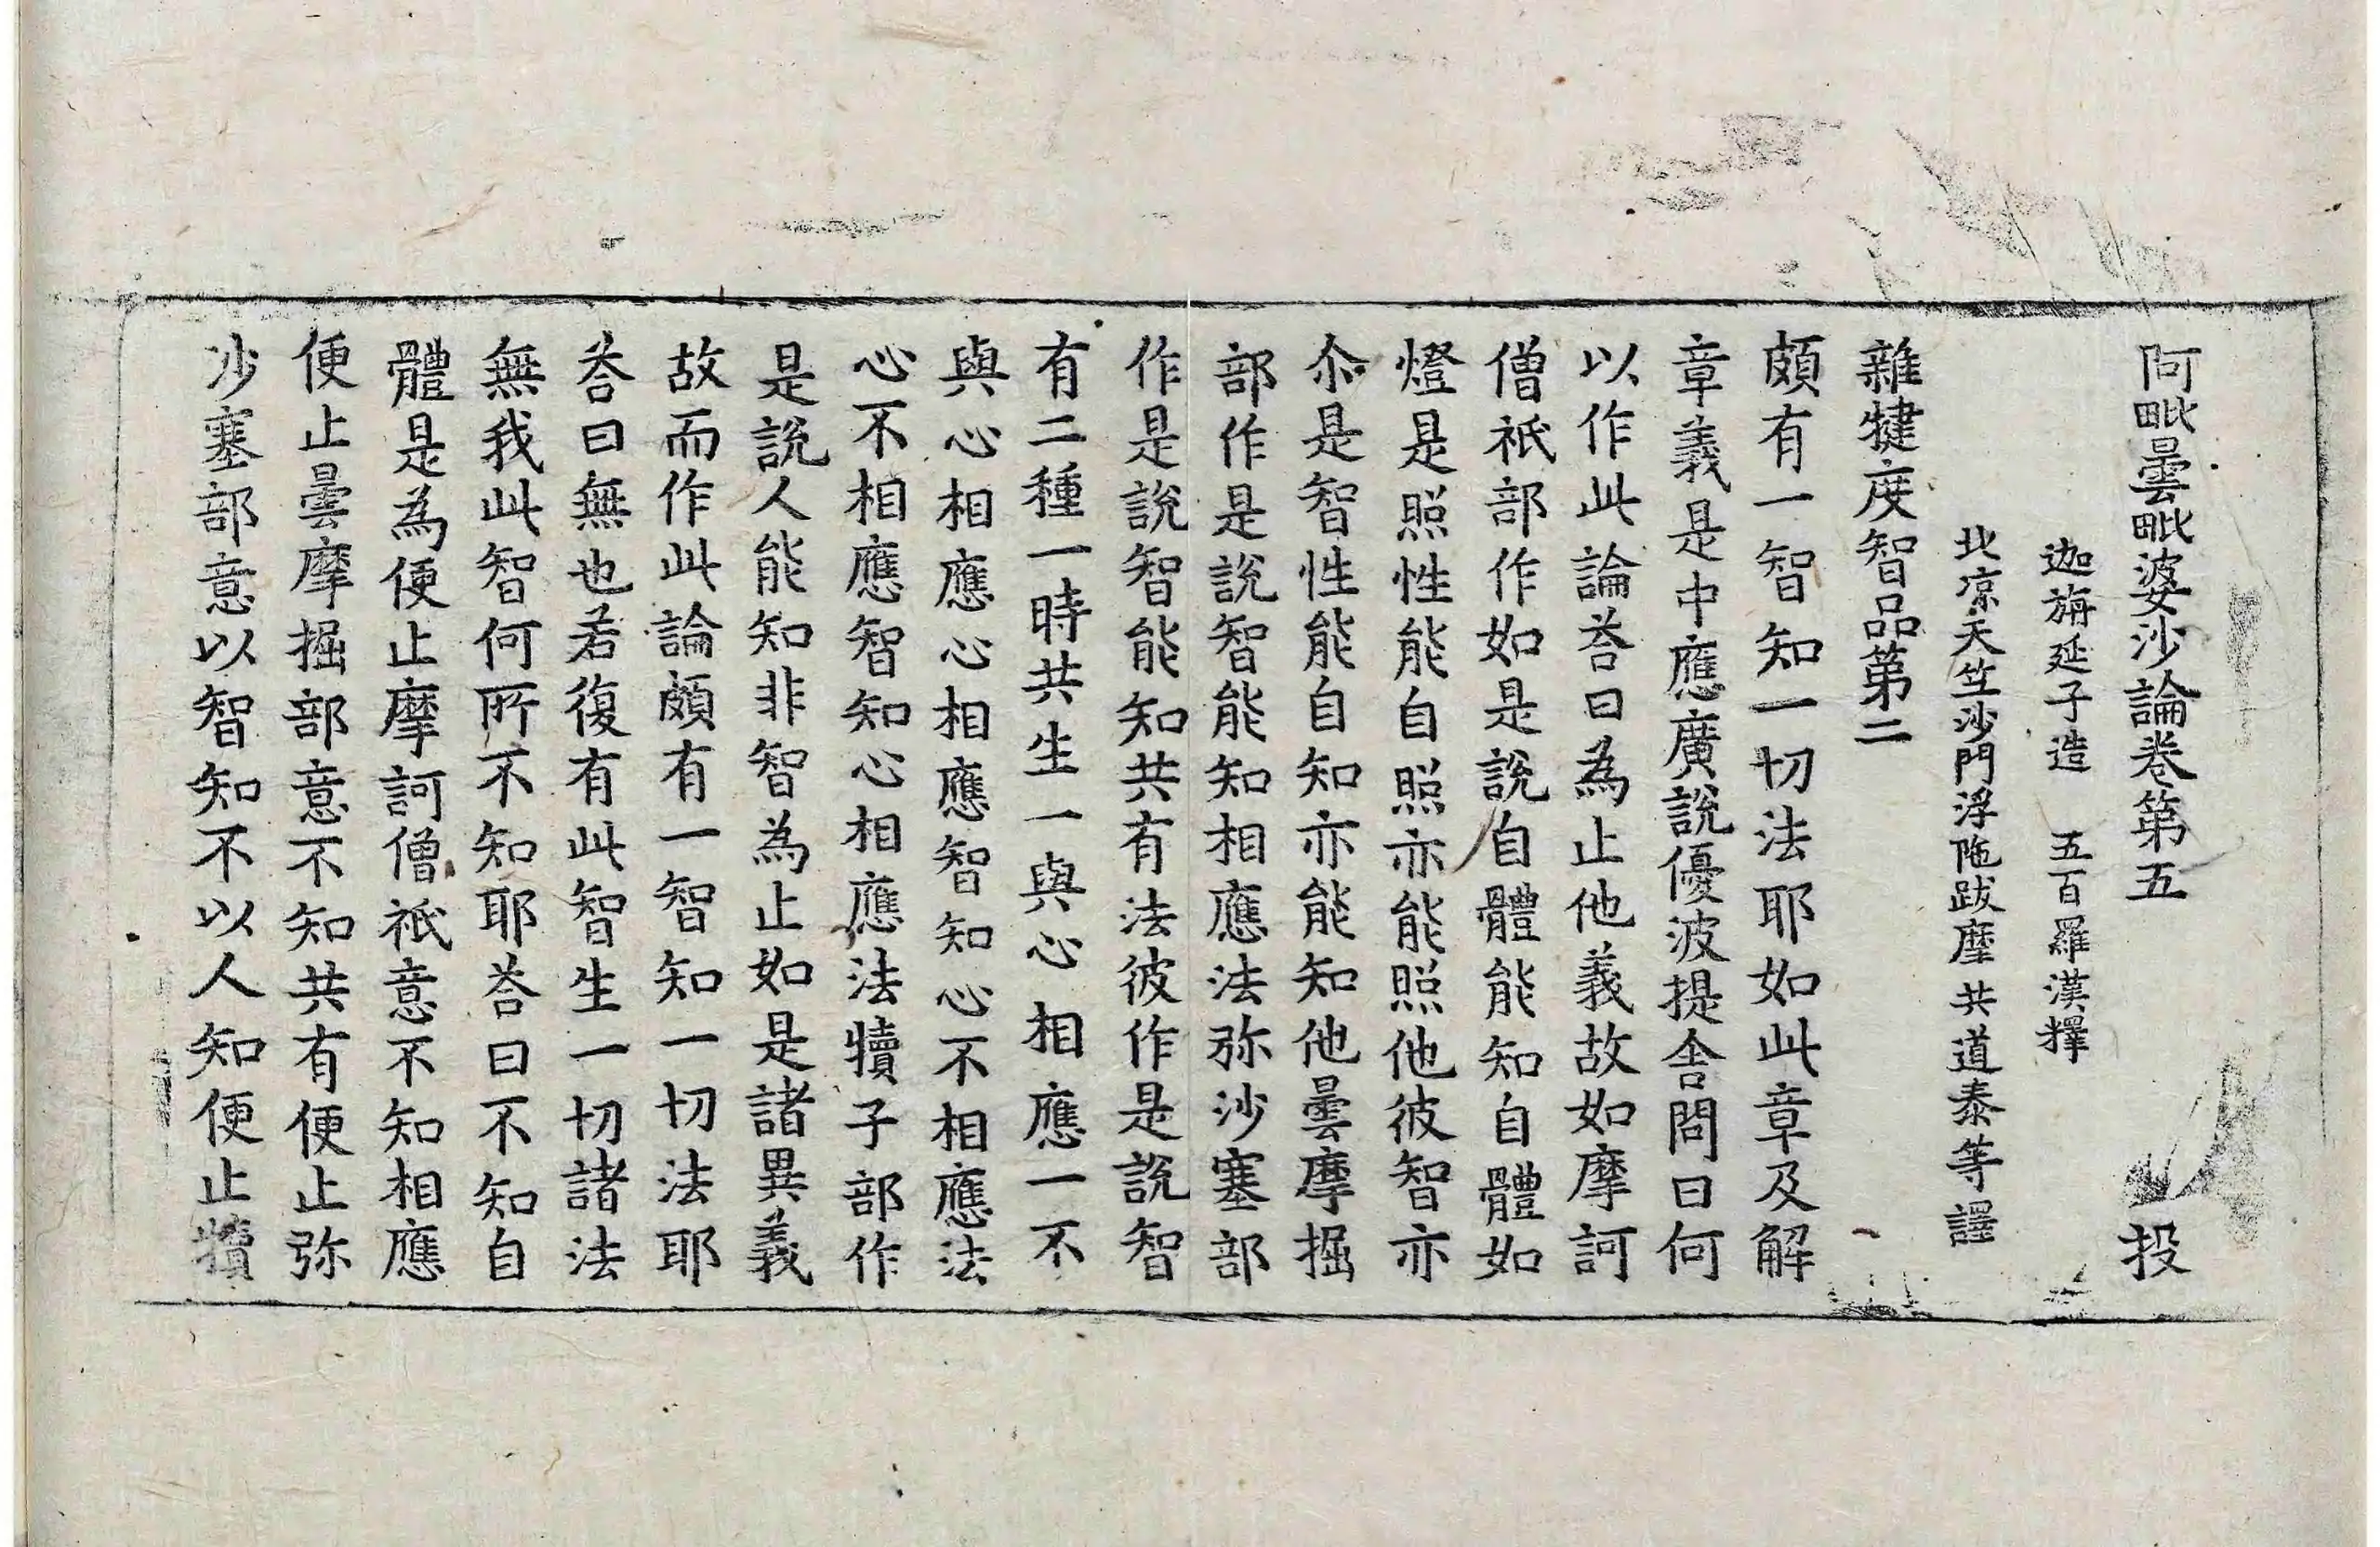 阿毗曇毗婆沙論卷第五　投
迦旃延子造　五百羅漢釋
北凉天竺沙門浮陁跋摩共道泰等譯
雜犍度智品第二
頗有一智知一切法耶如此章及解
章義是中應廣說優波提舍問曰何
以作此論荅曰為止他義故如摩訶
僧祇部作如是說自體能知自體如
燈是照性能自照亦能照他彼智亦
尒是智性能自知亦能知他曇摩掘
部作是說智能知相應法弥沙塞部
作是說智能知共有法彼作是說智
有二種一時共生一與心相應一不
與心相應心相應智知心不相應法
心不相應智知心相應法犢子部作
是說人能知非智為止如是諸異義
故而作此論頗有一智知一切法耶
荅曰無也若復有此智生一切諸法
無我此智何所不知耶荅曰不知自
體是為便止摩訶僧祇意不知相應
便止曇摩掘部意不知共有便止弥
沙塞部意以智知不以人知便止犢